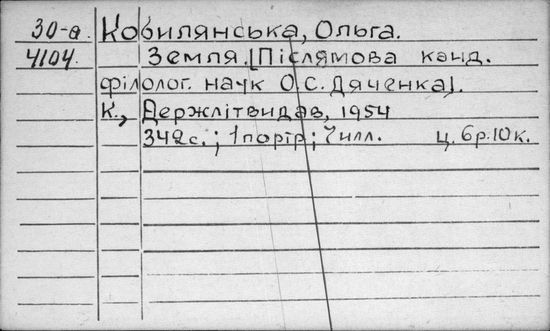 30-а. Кобилянська, Ольга.
4104. Земля. [Післямова канд.
філолог. наук О.С. Дяченка].
К., Держлітвидав, 1954
342с.; 1 портр; 7 илл. ц. 6р.10к.